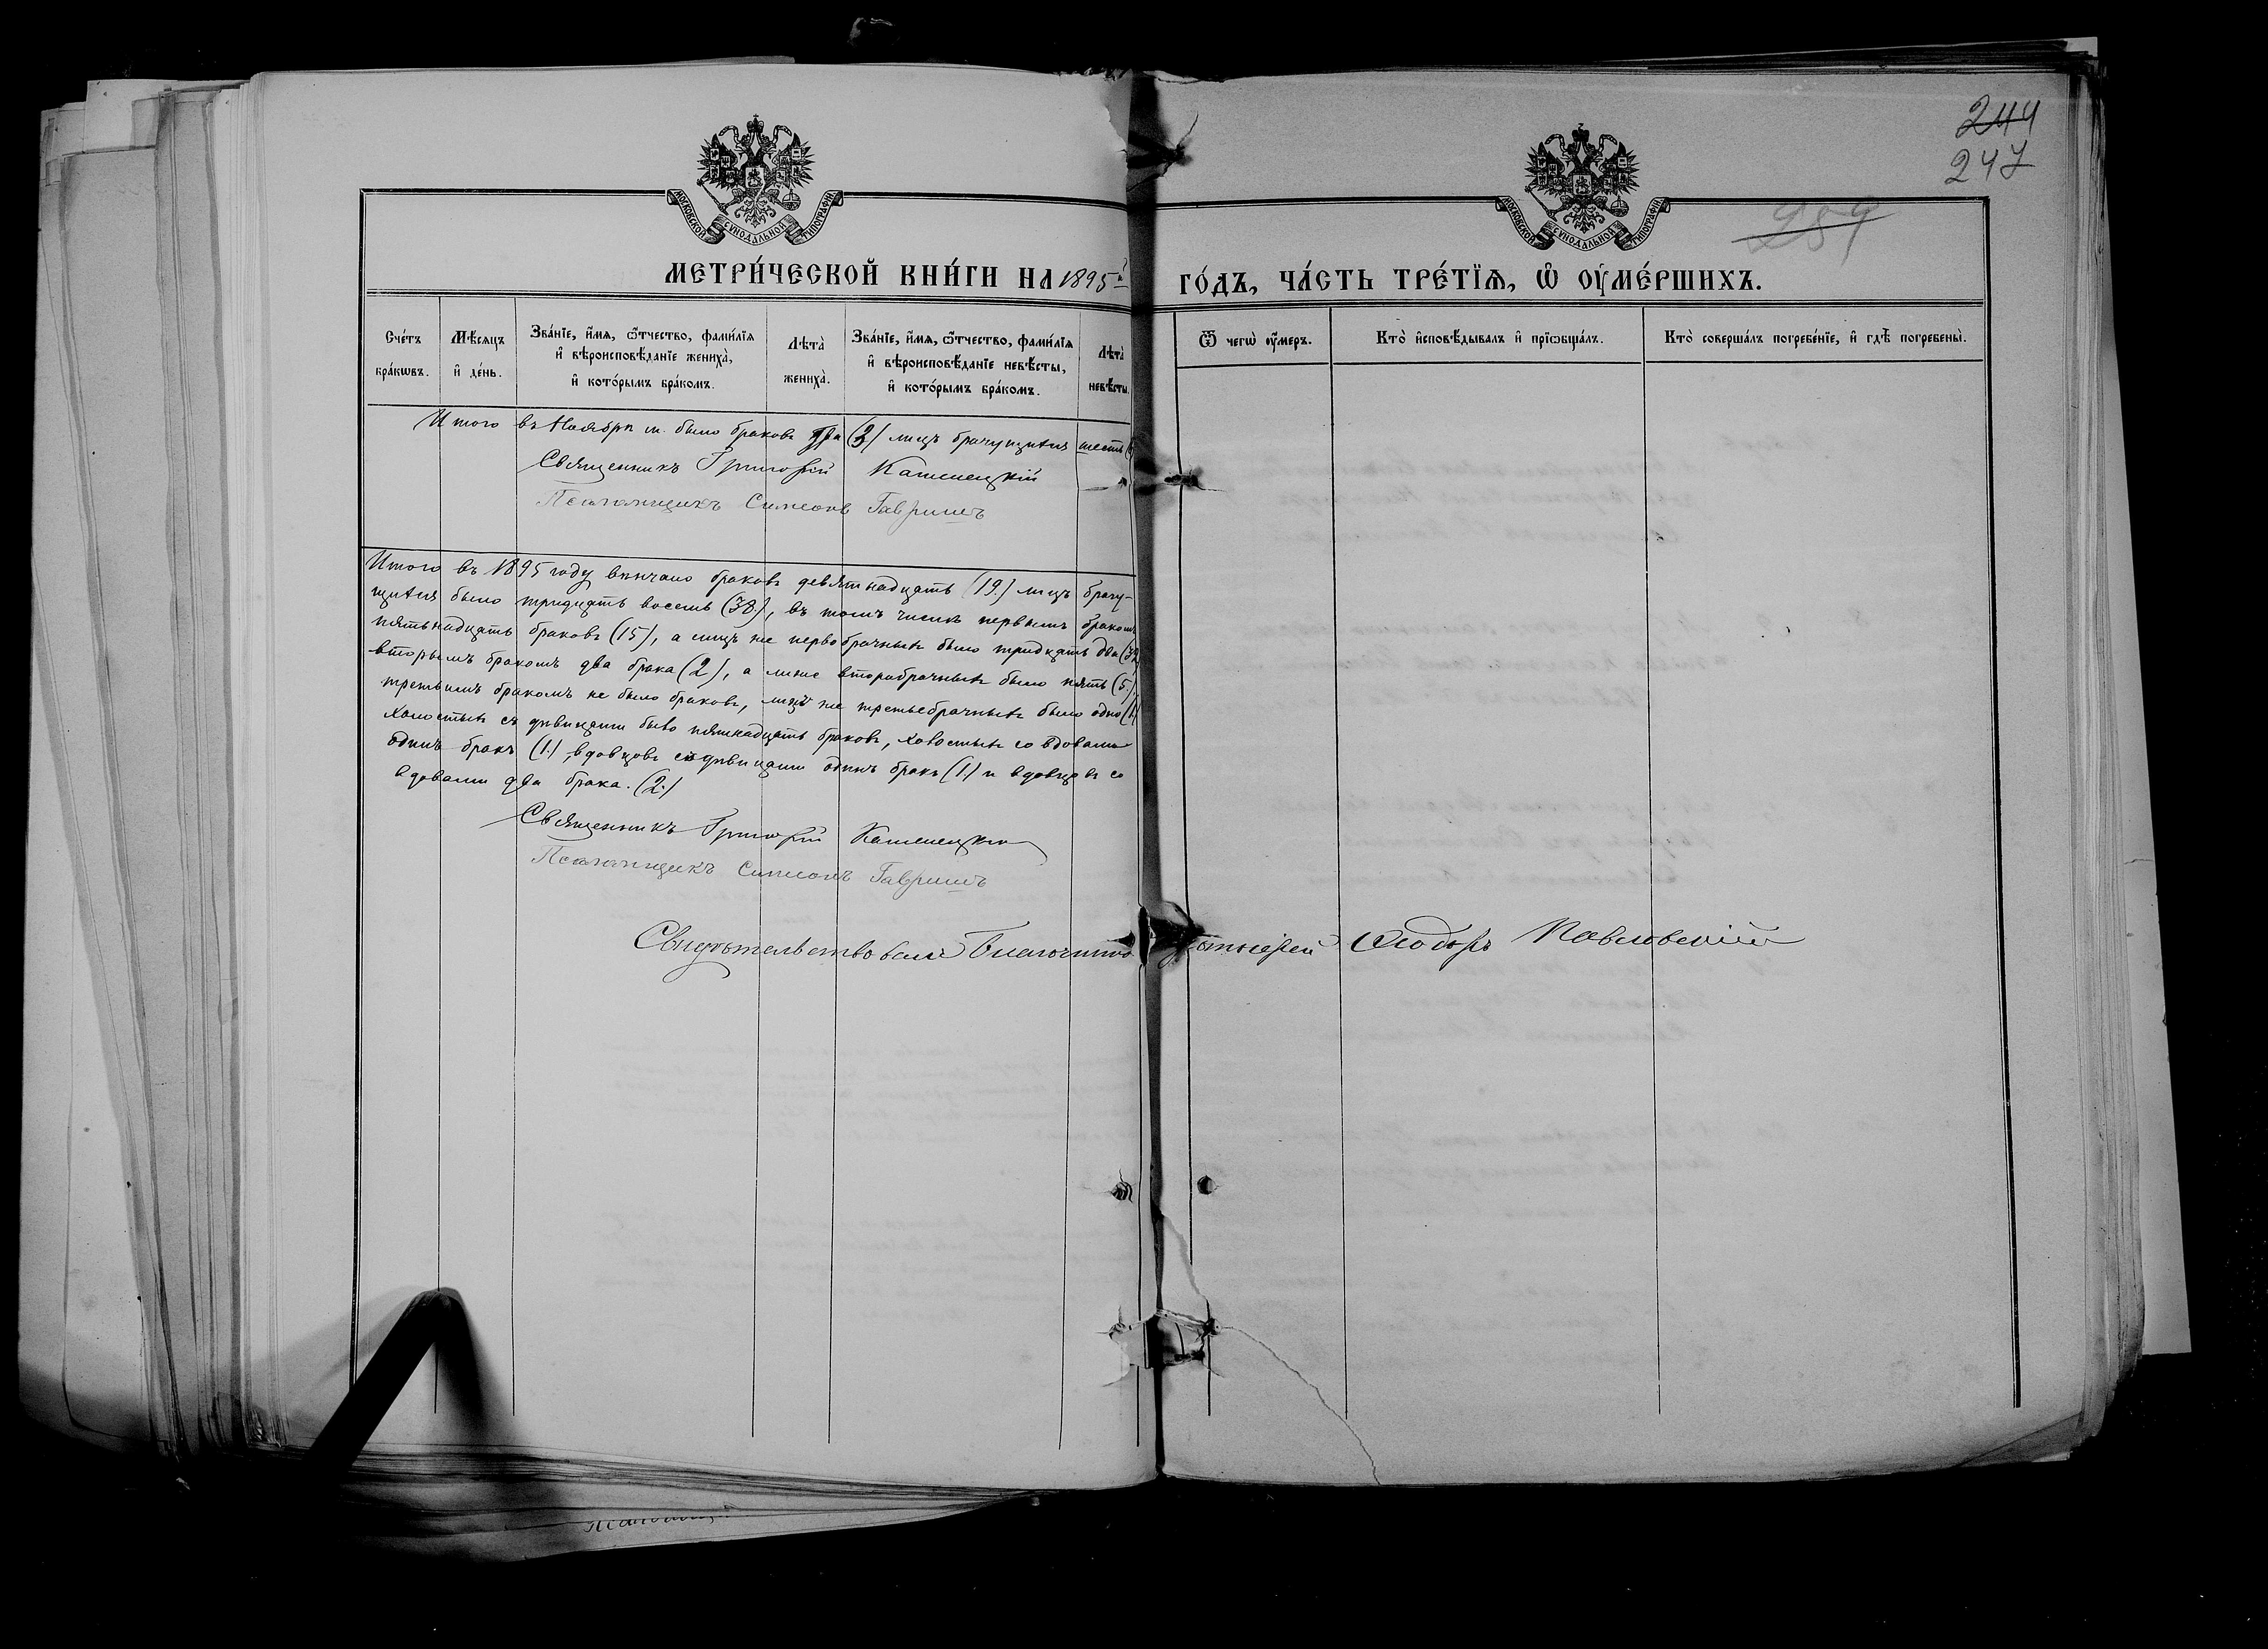 244
247
259
МОСКОВСКОЙ СѴНОДАЛЬНОЙ ТИПОГРАФІИ
МОСКОВСКОЙ СѴНОДАЛЬНОЙ ТИПОГРАФІИ
МЕТРИ́ЧЕСКОЙ КНИ́ГИ НА 1895й
ГО́ДЪ, ЧА́СТЬ ТРЕ́ТЇѦ, Ѡ҆ ОУ҆МЕ́РШИХЪ.
Сче́тъ бра́кѡвъ.
Мѣ́сяцъ и҆ де́нь.
Зва́нїе, и҆́мѧ, ѻ҆́тчество, фами́лїѧ
и҆ вѣроисповѣ́данїе жениха̀,
и҆ кото́рымъ бра́комъ.
Лѣта̀ жениха̀.
Зва́нїе, и҆́мѧ, ѻ҆́тчество, фами́лїѧ
и҆ вѣроисповѣ́данїе невѣ́сты,
и҆ кото́рымъ бра́комъ.
Лѣта̀ невѣ́сты.
Ѿ чегѡ̀ оу҆́меръ.
Кто̀ и҆сповѣ́дывалъ и҆ прїѡбща́лъ.
Кто̀ соверша́лъ погребе́нїе, и҆ гдѣ̀ погребены̀.
Итого въ Ноябрѣ м. было браковъ (3) лицъ брачущихся шесть
Священникъ Григорій Каменецкій
Псаломщикъ Симеонъ Гавришъ
Итого въ 1895 году вѣнчано браковъ девятнадцать (19.) лицъ брачу-
щихся было тридцать восемь (38.), въ томъ числѣ первымъ бракомъ
пятьнадцать браковъ (15), а лицъ же первобрачныхъ было тридцать два (32
вторымъ бракомъ два брака (2), а лицъ второбрачныхъ было пять (5.)
третьимъ бракомъ не было браковъ, лицъ же третьебрачныхъ было одно (1)
холостыхъ съ дѣвицами было пятнадцать браковъ, холостыхъ со вдовами
одинъ бракъ (1.), вдовцовъ съ дѣвицами одинъ бракъ (1.) и вдовцовъ со
вдовами два брака. (2.)
Священникъ Григорій Каменецкій
Псаломщикъ Симеонъ Гавришъ
Свидѣтельствовалъ Благочинный Протоіерей Ѳеодоръ Павловскій